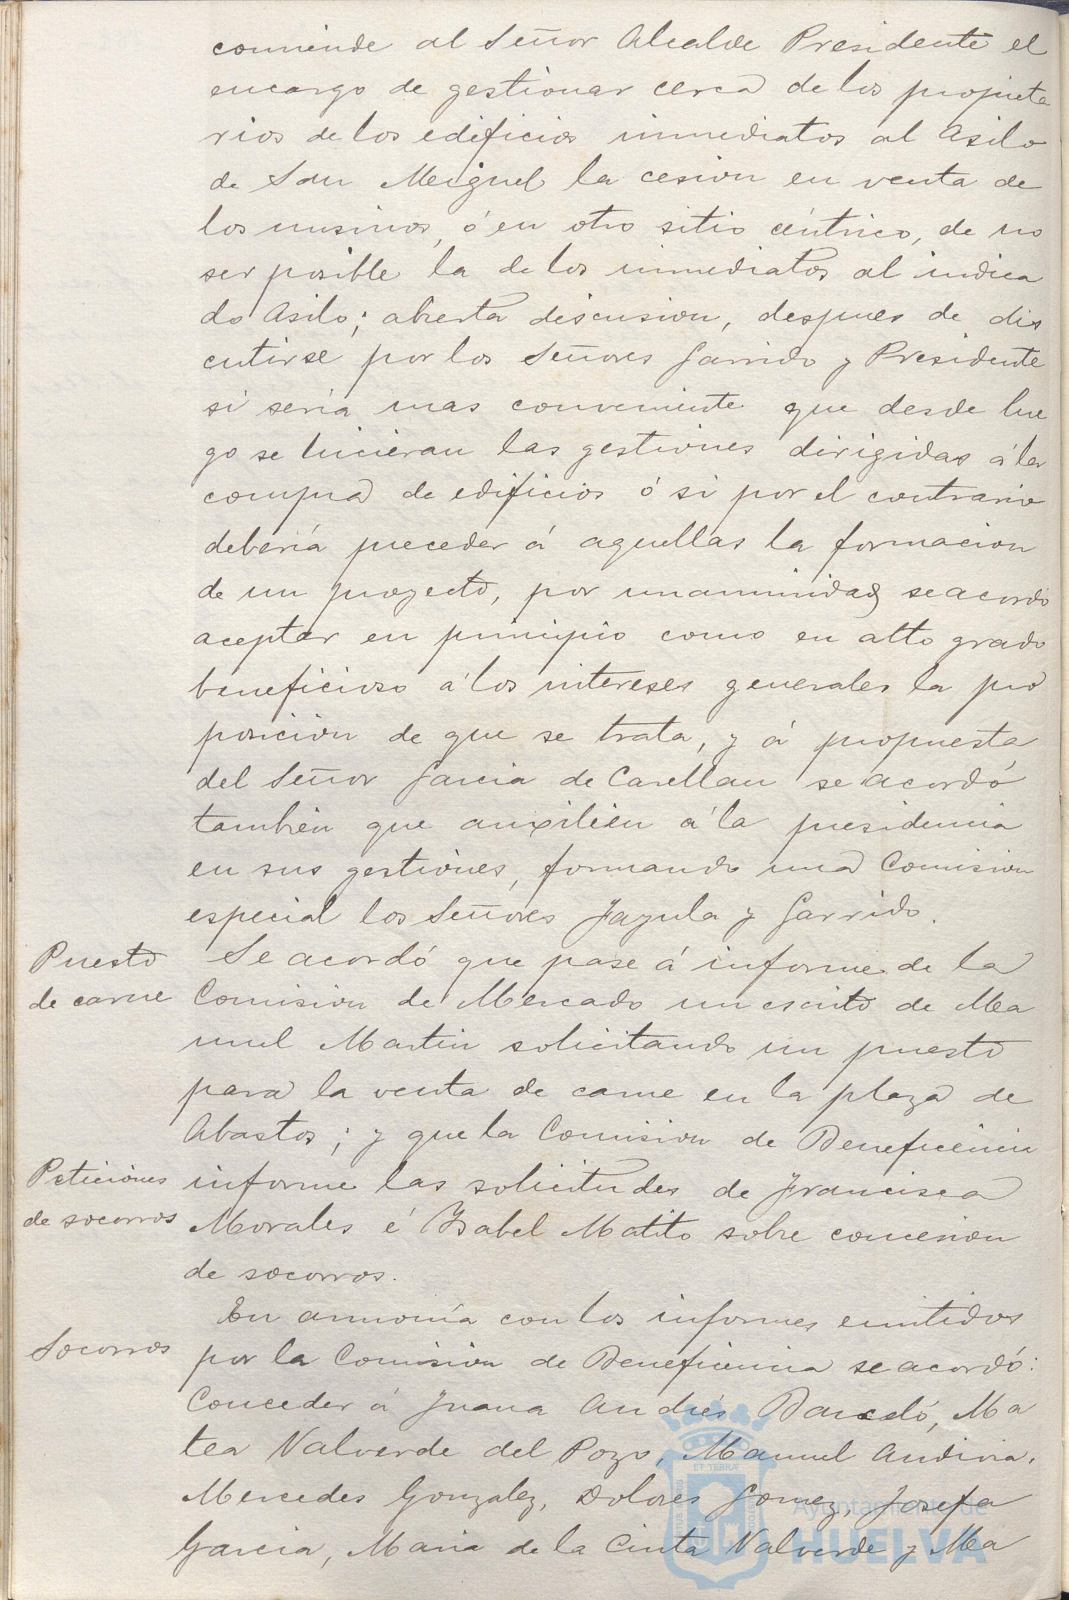 comiende al Señor Alcalde Presidente el
encargo de gestionar cerca de los propieta
rios de los edificios inmediatos al Asilo
de San Meiguel la cesion en venta de
los mismos, ó en otro sitio céntrico, de no
ser posible la de los inmediatos al indica
do Asilo; abierta discusion, despues de dis
cutirse por los Señores Garrido y Presidente
si seria mas conveniente que desde lue
go se hicieran las gestiones dirigidas á la
compra de edificios ó si por el contrario
deberia preceder á aquellas la formacion
de un proyecto, por unanimidad se acordó
aceptar en principio como en alto grado
beneficioso á los intereses generales la pro
posicion de que se trata, y á propuesta
del Señor Garcia de Casellau se acordó
tambien que auxilien á la presidencia
en sus gestiones, formando una Comision
especial los Señores Jazula y Garrido.
Puesto
de carne
Se acordó que pase á informe de la
Comision de Mercado un escrito de Ma
nuel Martin solicitando un puesto
para la venta de carne en la plaza de
Abastos; y que la Comision de Beneficencia
Peticiones
de socorros
informe las solicitudes de Francisca
Morales é Ysabel Matito sobre concesion
de socorros.
Socorros
En armonía con los informes emitidos
por la Comision de Beneficencia se acordó:
Conceder á Juana Andrés Barceló, Ma
tea Valverde del Pozo, Manuel Andivia,
Mercedes Gonzalez, Dolores Gomez, Josefa
Garcia, Maria de la Cinta Valverde y Ma
Ayuntamiento de
HUELVA